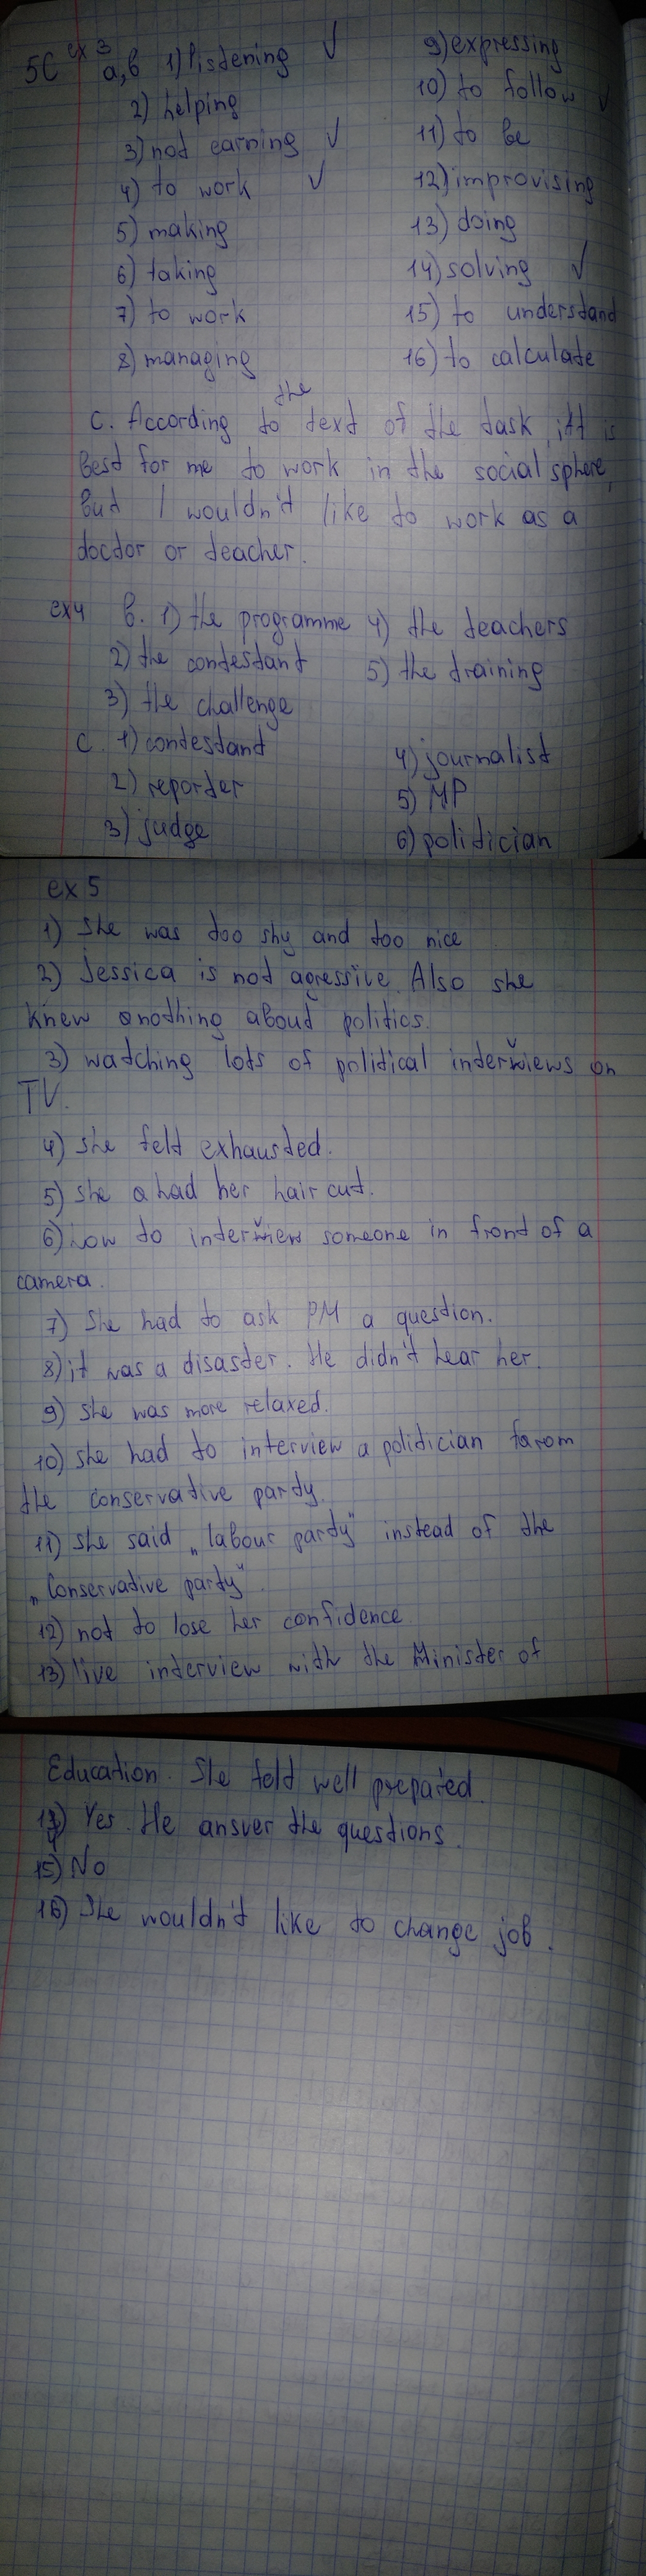 5C ex 3 a,b 1) listening ✓
2) helping
3) not earning ✓
4) to work ✓
5) making
6) taking
7) to work
8) managing
9) expressing
10) to follow ✓
11) to be
12) improvising
13) doing
14) solving ✓
15) to understand
16) to calculate
the
c. According to text of the task, it is
best for me to work in the social sphere,
but I wouldn't like to work as a
doctor or teacher.
ex4 b. 1) the programme 4) the teachers
2) the contestant 5) the training
3) the challenge
c. 1) contestant 4) journalist
2) reporter 5) MP
3) judge 6) politician
ex 5
1) She was too shy and too nice
2) Jessica is not agressive. Also she
knew nothing about politics.
3) watching lots of political interviews on
TV.
4) she felt exhausted.
5) she had her hair cut.
6) how to interview someone in front of a
camera.
7) She had to ask PM a question.
8) it was a disaster. He didn't hear her.
9) she was more relaxed.
10) she had to interview a politician farom
the conservative party.
11) she said „labour party" instead of the
„Conservative party".
12) not to lose her confidence
13) live interview with the Minister of
Education. She felt well prepared.
14) Yes. He answer the questions.
15) No
16) She wouldn't like to change job.